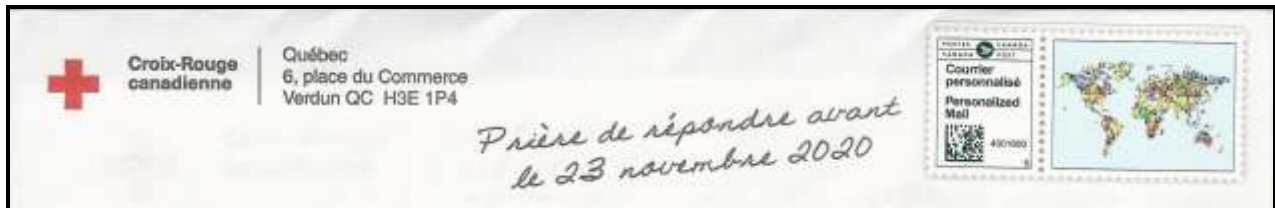 Croix-Rouge
canadienne
Québec
6, place du Commerce
Verdun QC H3E 1P4
Prière de répondre avant
le 23 novembre 2020
POSTES CANADA
CANADA POST
Courrier
personnalisé
Personalized
Mail